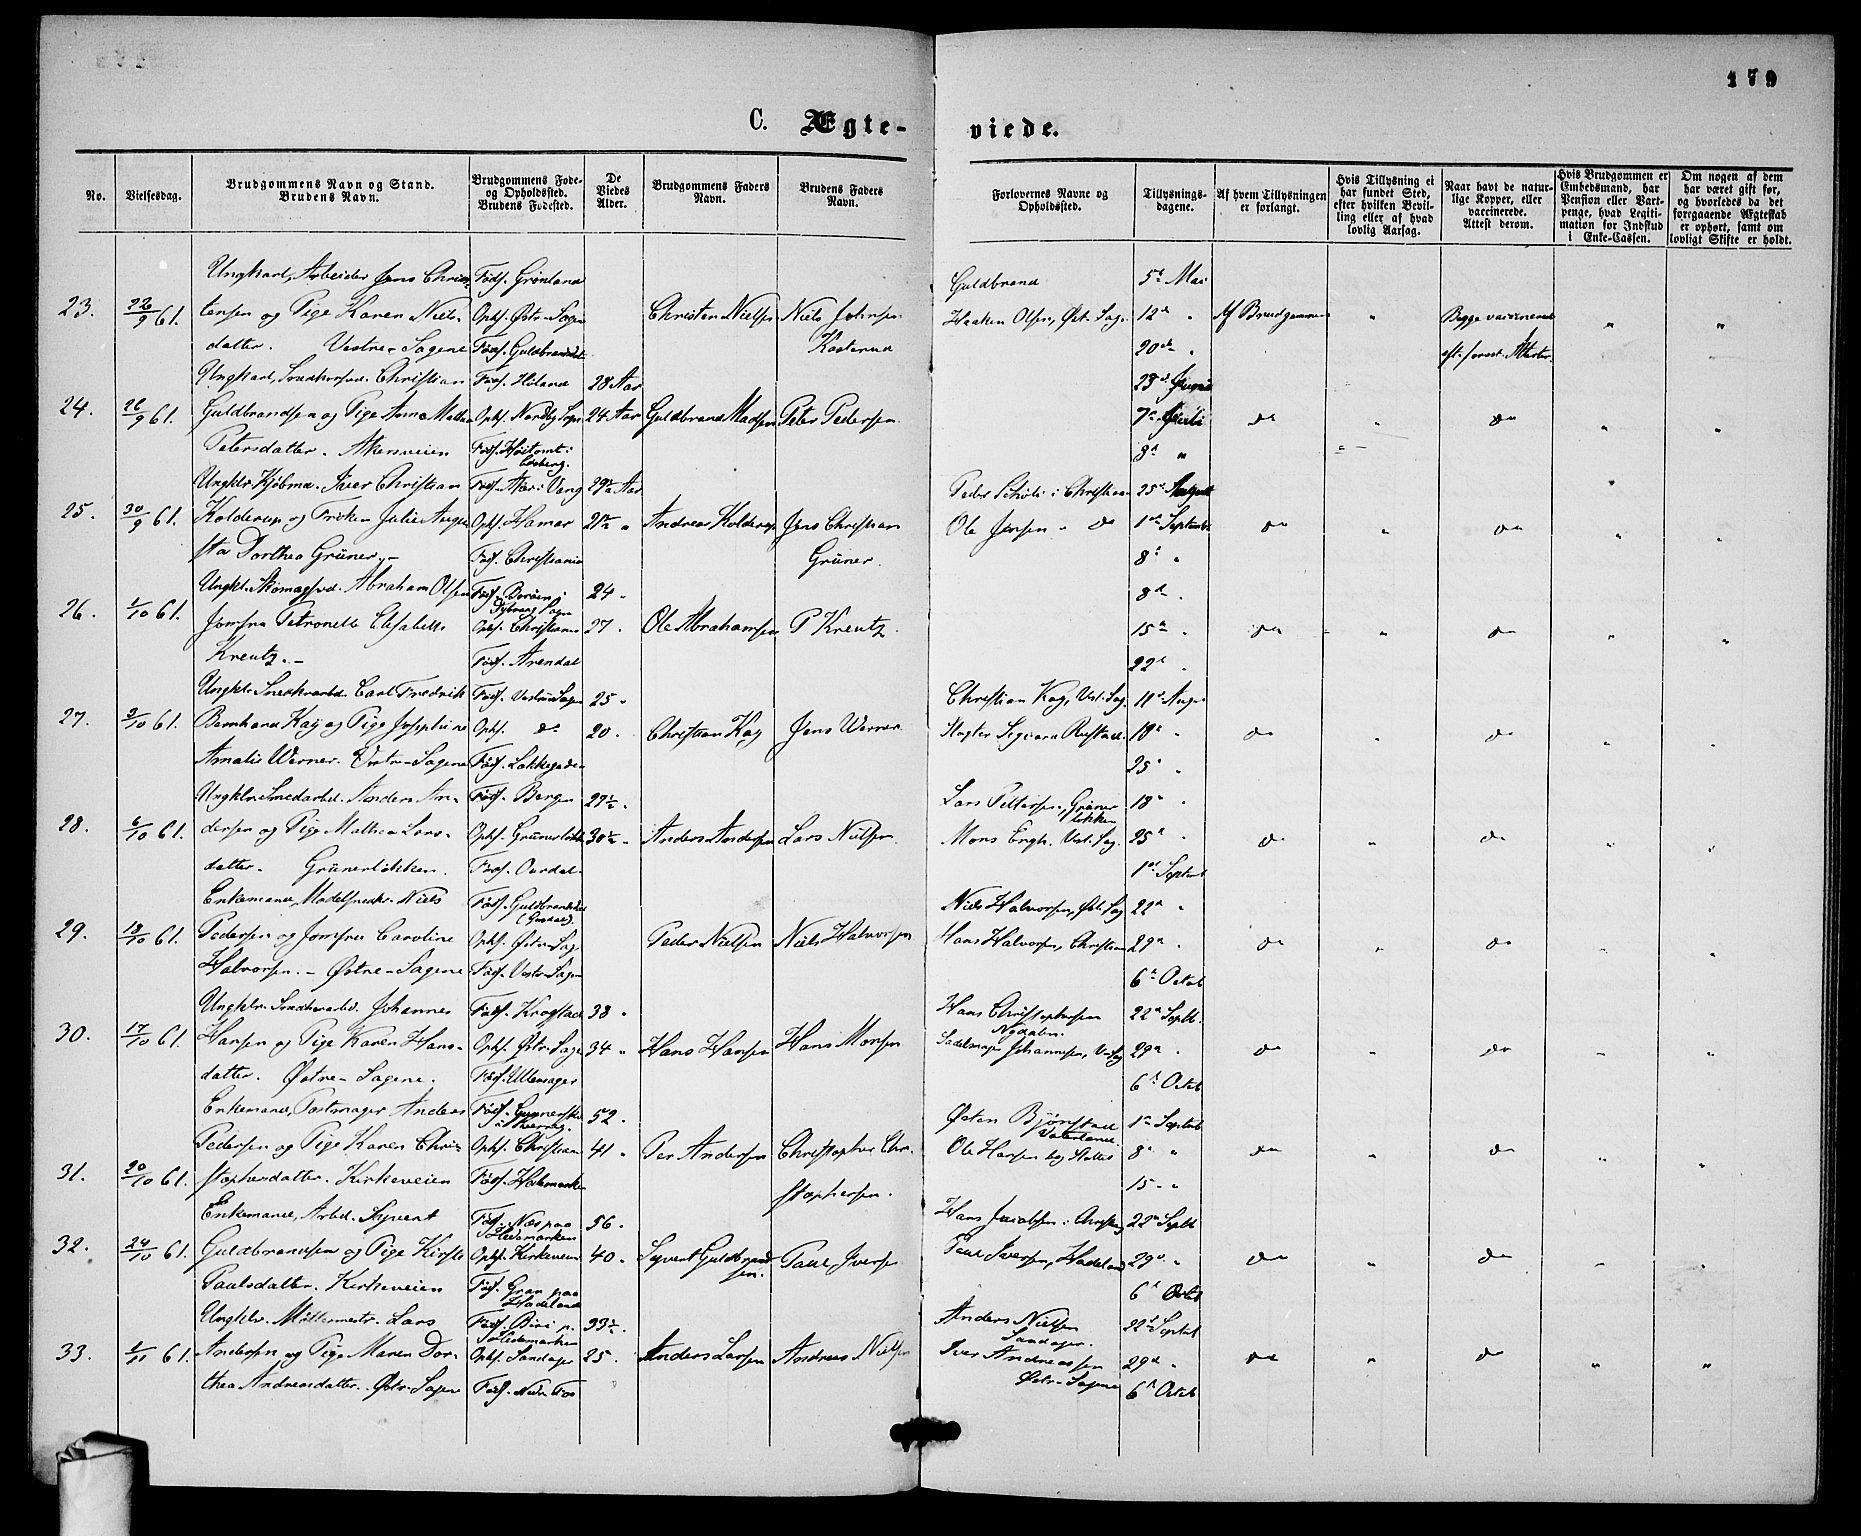 179
C. Ægte-
viede.
No.
Vielsesdag.
Brudgommens Navn og Stand.
Brudens Navn.
Brudgommens Føde-
og Opholdssted.
Brudens Fødested.
De
Viedes
Alder.
Brudgommens Faders
Navn.
Brudens Faders
Navn.
Forlovernes Navne og
Opholdssted.
Tillysnings-
dagene.
Af hvem Tillysningen
er forlangt.
Hvis Tillysning ei
har fundet Sted,
efter hvilken Bevil-
ling eller af hvad
lovlig Aarsag.
Naar havt de natur-
lige Kopper, eller
vaccinerede.
Attest derom.
Hvis Brudgommen er
Embedsmand, har
Pension eller Vart-
penge, hvad Legiti-
mation for Indskud
i Enke-Cassen.
Om nogen af dem
har været gift før,
og hvorledes da det
foregaaende Ægteskab
er ophørt, samt om
lovligt Skifte er holdt.
23. 22/9 61.
Ungkarl, Arbeider Jens Chris-
tensen og Pige Karen Niels-
datter. Vestre-Sagene
Føds. Grønland
Oph. Østre-Sagen
Christen Nielsen
Niels Johnsen
Guldbrand
Haaken Olsen, Øst. Sag.
5d Mai
12d "
20de "
Af Brudgommen
"
Begge vaccinerede
eft. forevst. Attester.
"
"
24. 26/9 61.
Ungkarl, Christian
Guldbrandsen og Pige Anne Mathea
Petersdatter. Akersveien
Føds. Høland
Oph. Nordby Sogn
Føds. Høitomt i
Edsberg.
28 Aar
24 Aar
Guldbrand Madsen
Peter Pedersen
23d Juni
7d Juli
8d "
do
"
do
"
"
25. 30/9 61.
Ungklr. Kjøbmd. Iver Christian
Kolderup og Frøken Julie Augu-
sta Dorthea Grüner.-
Føds. i Vang
Oph. Hamar
Føds. Christiania
29½ Aar
21½ "
Andreas Kolderup
Jens Christian
Grüner.
Peder i Christiania
Ole Jensen - do
25d August
1d Septemb
8d "
do
"
do
"
"
26. 1/10 61.
Ungkl. Skomagsvd. Abraham Olsen
Jomfru Petronelle Elisabeth
Kreutz.-
Føds. Borøen i
Dybvaag Sogn
Oph. Christiania
Føds. Arendal
24 "
27 "
Ole Abrahamsen
P Kreutz.
8d "
15d "
22d "
do
"
do
"
"
27. 3/10 61.
Ungklr. Snedkerarbd. Carl Fredrik
Bernhard Kay og Pige Josephine
Amalie Werner. Vestre-Sagene
Føds. Vestre Sagen
Oph. do
Føds. Lakkegaden
25 "
20 "
Christian Kay
Jens Werner.
Christian Kay, Vest. Sag.
Slagter Rustad.
11d Aug.
18d "
25d "
do
"
do
"
"
28. 6/10 61.
Ungklr. Smedarbd. Anders An-
dersen og Pige Mathea Lars-
datter. Grünerløkken.
Føds. Bergen
Oph. Grünerløkken
Føds. Ourdal.
27½ "
30½ "
Anders Andersen
Lars Nielsen.
Lars Pettersen, Grüner
løkken
Mons Engh. Vest. Sag.
18d "
25d "
1d Septemb
do
"
do
"
"
29. 13/10 61.
Enkemand, Modelsnedkr. Niels
Pedersen og Jomfru Caroline
Halvorsen.- Østre-Sagene
Føds. Guldbrandsdal
(Gusdal)
Oph. Østre-Sag.
Føds. Vestre-Sagen
Peder Nielsen
Niels Halvorsen
Niels Halvorsen, Øst. Sag.
Hans Halvorsen, Christiania
22d "
29d "
6d Octob
do
"
do
"
"
30. 17/10 61.
Ungklr. Snedkerarbd. Johannes
Hansen og Pige Karen Hans-
datter. Østre-Sagene.
Føds. Krogstad
Oph. Østre-Sagen
Føds. Ullensager
33 "
34 "
Hans Hansen
Hans Monsen
Hans Christophersen
Nydalen.
Sadelmager Johannesen,
22d Septb.
29d "
6d Octob
do
"
do
"
"
31. 20/10 61.
Enkemand, Postmager Anders
Pedersen og Pige Karen Chri-
stophersdatter. Kirkeveien
Oph. Christiania
Føds. Hedemarken
52 "
41 "
Per Andersen
Christopher Chri-
stophersen.
Østen Bjørnstad
Vaterland.
Ole Hansen
1d Septemb
8d "
15 - "
do
"
do
"
"
32. 24/10 61.
Enkemand, Arbd. Syvert
Guldbrandsen og Pige Kirsti
Paulsdatter. Kirkeveien
Føds. Næs paa
Hedemarken
Oph. Kirkeveien
Føds. Gran paa
Hadeland
56 "
40 "
Syvert Guldbrand
sen.
Paul Iversen
Hans Jacobsen i Christiania
Paul Iversen, Hadeland
22d Septb
29d "
6d Octob
do
"
do
"
"
33. 1/11 61.
Ungklr. Møllermestr. Lars
Andersen og Pige Maren Dor-
thea Andreasdatter. Østre-Sagene
Føds. Biri p.
Hedemarken
Oph. Sandager
Føds. Nedre Foss
33½ "
25 "
Anders Larsen
Andreas Nielsen
Anders Nielsen
Sandager.
Iver Andreassen
Østre-Sagene
22d Septemb
29d "
6d Octob
do
"
do
"
"